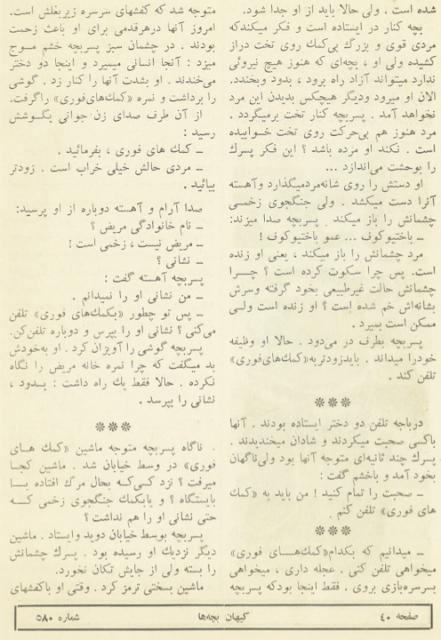 شده است . ولی حالا باید از او جدا شود.
بچه کنار در ایستاده است و فکر میکندکه
مردی قوی و بزرگ بی‌کمك روی تخت دراز
کشیده ولی او ، بچه‌ای که هنوز هیچ نیروئی
ندارد میتواند آزاد راه برود ، بدود وبخندد.
الان او میرود ودیگر هیچکس بدیدن این مرد
نخواهد آمد . پسربچه کنار تخت برمیگردد .
مرد هنوز هم بی‌حرکت روی تخت خـوابیده
است . نکند او مرده باشد ؟ این فکر پسرك
را بوحشت می‌اندازد ...
او دستش را روی شانه‌مردمیگذارد وآهسته
آنرا دست میکشد . ولی جنگجوی زخمـی
چشمانش را باز میکند . پسربچه صدا میزند:
ــ باختیوکوف ... عمو باختیوکوف !
مرد چشمانش را باز میکند ، یعنی او زنده
است. پس چرا سکوت کرده است ؟ چـــرا
چشمانش حالت غیرطبیعی بخود گرفته وسرش
بشانه‌اش خم شده است ؟ او زنده است ولـی
ممکن است بمیرد .
پسربچه بطرف در می‌دود . حالا او وظیفه
خودرا میداند . بایدزودتربه«کمك‌های‌فوری»
تلفن کند .
***
درباجه تلفن دو دختر ایستاده بودند . آنها
باکسی صحبت میکردند و شادان میخندیدند .
پسرك چند ثانیه‌ای متوجه آنها بود ولی‌ناگهان
بخود آمد و باخشم گفت :
ــ صحبت را تمام کنید ! من باید به «کمك
های فوری» تلفن کنم .
***
ــ میدانیم که بکدام«کمك‌هـــای فوری»
میخواهی تلفن کنی . عجله داری ، میخواهی
بسرسره‌بازی بروی . فقط اینجا بودکه پسربچه
متوجه شد که کفشهای سرسره زیربغلش است.
امروز آنها درهرقدمی برای او باعث زحمت
بودند . در چشمان سبز پسربچه خشم مـــوج
میزد : آنجا انسانی میمیرد و اینجا دو دختر
می‌خندند . او بشدت آنها را کنار زد . گوشی
را برداشت و نمره «کمك‌های‌فوری» راگرفت.
از آن طرف صدای زن جوانی بگـــوشش
رسید :
ــ کمك های فوری ، بفرمائید .
ــ مردی حالش خیلی خراب است . زودتر
بیائید .
صدا آرام و آهسته دوباره از او پرسید:
ــ نام خانوادگی مریض ؟
ــ مریض نیست ، زخمی است !
ــ نشانی ؟
پسربچه آهسته گفت :
ــ من نشانی او را نمیدانم .
ــ پس تو چطور «بکمك‌های فوری» تلفن
می‌کنی ؟ نشانی او را بپرس و دوباره تلفن‌کن.
پسربچه گوشی را آویزان کرد . او به‌خودش
بد میگفت که چرا نمره خانه مریض را نگاه
نکرده . حالا فقط یك راه داشت : بـــدود ،
نشانی را بپرسد .
***
ناگاه پسربچه متوجه ماشین «کمك هـــای
فوری» در وسط خیابان شد . ماشین کجـا
میرفت ؟ نزد کسی‌کـه بحال مرك افتاده یـــا
بایستگاه ؟ و یابکمك جنگجوی زخمی کـــه
حتی نشانی او را هم نداشت ؟
پسربچه بوسط خیابان دوید وایستاد . ماشین
دیگر نزدیك او رسیده بود . پسرك چشمانش
را بسته ولی از جایش تکان نخورد.
ماشین بسختی ترمز کرد . وقتی او باکفشهای
صفحه ۴۰
کیهان بچه‌ها
شماره ۵۸۰